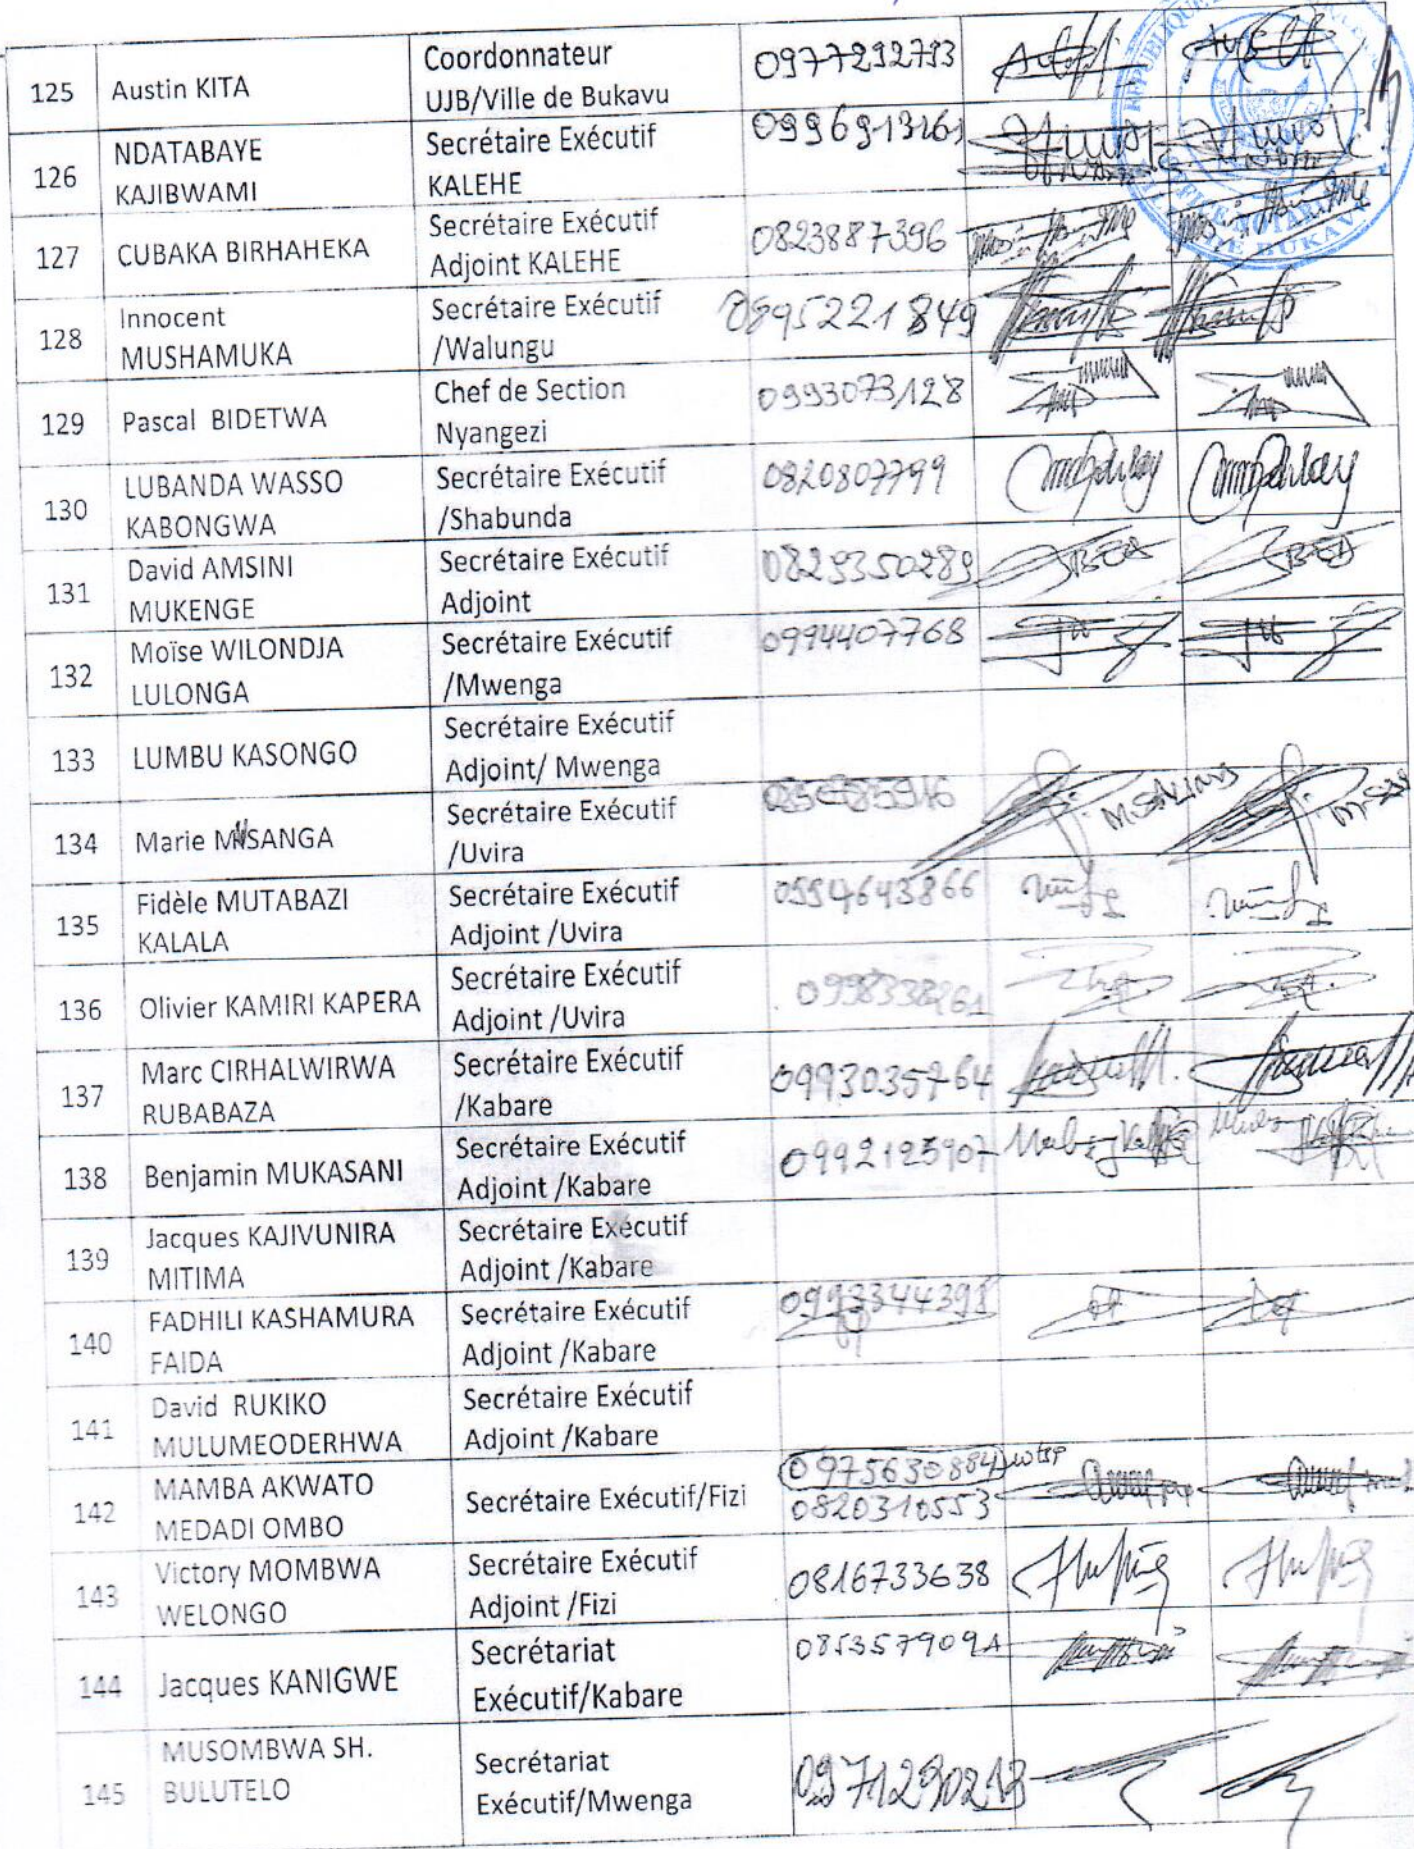 125 Austin KITA Coordonnateur UJB/Ville de Bukavu 0977292793
126 NDATABAYE KAJIBWAMI Secrétaire Exécutif KALEHE 0996913161
127 CUBAKA BIRHAHEKA Secrétaire Exécutif Adjoint KALEHE 0823887396
128 Innocent MUSHAMUKA Secrétaire Exécutif /Walungu 0895221849
129 Pascal BIDETWA Chef de Section Nyangezi 0993073128
130 LUBANDA WASSO KABONGWA Secrétaire Exécutif /Shabunda 0820807799
131 David AMSINI MUKENGE Secrétaire Exécutif Adjoint 0829350289
132 Moïse WILONDJA LULONGA Secrétaire Exécutif /Mwenga 0994407768
133 LUMBU KASONGO Secrétaire Exécutif Adjoint/ Mwenga
134 Marie MUSANGA Secrétaire Exécutif /Uvira
135 Fidèle MUTABAZI KALALA Secrétaire Exécutif Adjoint /Uvira 0994643866
136 Olivier KAMIRI KAPERA Secrétaire Exécutif Adjoint /Uvira 0998338261
137 Marc CIRHALWIRWA RUBABAZA Secrétaire Exécutif /Kabare 0993035764
138 Benjamin MUKASANI Secrétaire Exécutif Adjoint /Kabare 0992125907
139 Jacques KAJIVUNIRA MITIMA Secrétaire Exécutif Adjoint /Kabare
140 FADHILI KASHAMURA FAIDA Secrétaire Exécutif Adjoint /Kabare 0993344398
141 David RUKIKO MULUMEODERHWA Secrétaire Exécutif Adjoint /Kabare
142 MAMBA AKWATO MEDADI OMBO Secrétaire Exécutif/Fizi 0975630884 wtsp 0820310553
143 Victory MOMBWA WELONGO Secrétaire Exécutif Adjoint /Fizi 0816733638
144 Jacques KANIGWE Secrétariat Exécutif/Kabare 0853579091
145 MUSOMBWA SH. BULUTELO Secrétariat Exécutif/Mwenga 0971290213